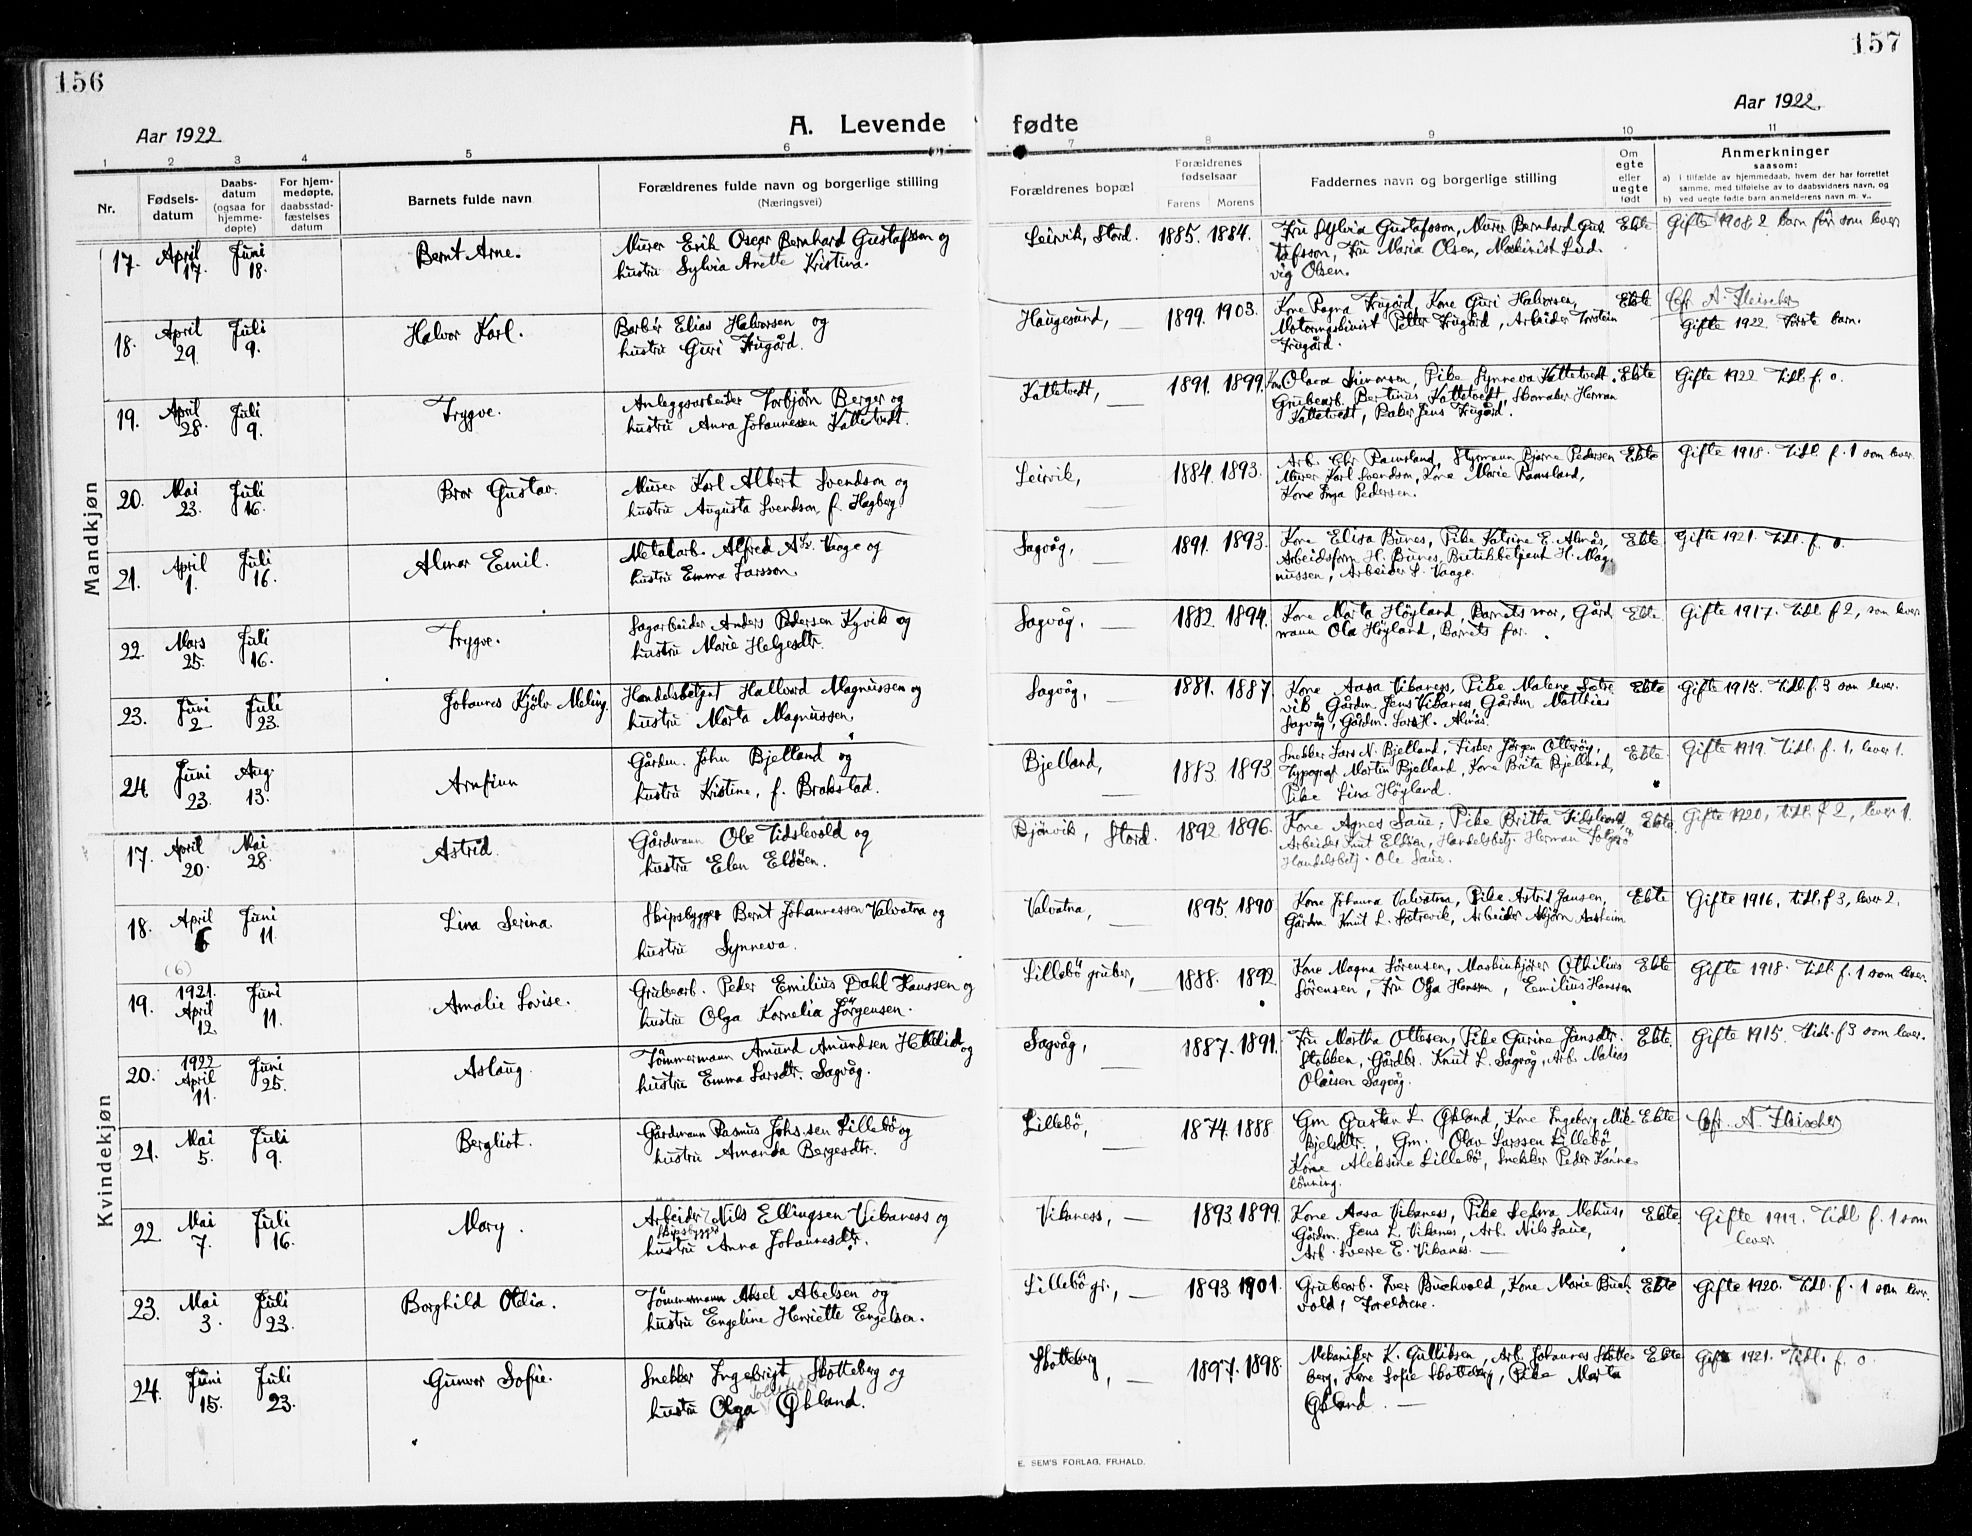 156
157
Aar 1922
Aar 1922.
A. Levende fødte
1 2 3 4 5 6 7 8 9 10 11
Nr.
Fødsels-
datum
Daabs-
datum
(ogsaa for
hjemme-
døpte)
For hjem-
medøpte,
daabsstad-
fæstelses
datum
Barnets fulde navn
Forældrenes fulde navn og borgerlige stilling
(Næringsvei)
Forældrenes bopæl
Forældrenes
fødselsaar
Farens Morens
Faddernes navn og borgerlige stilling
Om
egte
eller
uegte
født
Anmerkninger
saasom:
a) i tilfælde av hjemmedaab, hvem der har forrettet
samme, med tilføielse av to daabsvidners navn, og
b) ved uegte fødte barn anmelderens navn m. v..
Mandkjøn
17. April 17. Juni 18. Bernt Arne. Murer Erik Oscar Bernhard Gustafsson og
hustru Sylvia Anette Kristina.
Leirvik, Stord. 1885. 1884. Fru Sylvia Gustafsson, Murer Bernhard Gus
tafsson, Fru Maria Olsen, Maskinist Lud
vig Olsen.
Ekte Gifte 1908 2 barn før som lever
18. April 29. Juli 9. Halvor Karl. Barbér Elias Halvorsen og
hustru Guri Frugård.
Haugesund, 1899. 1903. Kone Ragna Frugård, Kone Guri Halvorsen,
Petter Frugård, Arbeider Torstein
Frugård.
Ekte Cfr. A. Fleischer
Gifte 1922 Første barn.
19. April 28. Juli 9. Trygve. Anleggsarbeider Torbjørn Berger og
hustru Anna Johannessen Kattetvedt.
Kattetvedt, — 1891. 1899. Kone Olava Simonsen, Pike Synneva Kattetvedt.
Grubearb. Bertinus Kattetvedt, Skomaker Herman
Kattetvedt, Baker Jens Frugård.
Ekte Gifte 1922 Tidl. f. 0.
20. Mai 23. Juli 16. Bror Gustav. Murer Karl Albert Svendson og
hustru Augusta Svendson f. Hagberg
Leirvik, — 1884. 1893. Arb. Chr. Ramsland, Styrmann Bjarne Pedersen
Murer Karl Svendson, Kone Marie Ramsland,
Kone Inga Pedersen.
Ekte Gifte 1918. Tidl. f. 1 som lever.
21. April 1. Juli 16. Almar Emil. Metalarb. Alfred Vaage og
hustru Emma Larsson.
Sagvåg, — 1891. 1893. Kone Elisa Bunes, Pike Katrine E. Almås,
Arbeidsform. H. Bunes, Butikkbetjent H. Mag
nussen, Arbeider S. Vaage.
Ekte Gifte 1921. Tidl. f. 0.
22. Mars 25. Juli 16. Trygve. Sagarbeider Anders Pedersen Kyvik og
hustru Marie Helgesdtr.
Sagvåg. — 1882 1894. Kone Marta Høyland, Barnets mor, Gård
mann Ola Høyland, Barnets far.
Ekte Gifte 1917. Tidl. f 2, som lever
23. Juni 2 Juli 23. Johannes Kjølv Meling. Handelsbetjent Hallvard Magnussen og
hustru Marta Magnussen.
Sagvåg, — 1881. 1887. Kone Aasa Vikaness, Pike Malene Sætre
vik Gårdm Jens Vikaness, Gårdm Matthias
Sagvåg, Gårdm. Lars H. Almås.
Ekte Gifte 1915. Tidl. f. 3 som lever.
24 Juni 23. Aug. 13. Arnfinn Gårdm. John Bjelland og
hustru Kristine, f. Brakstad.
Bjelland, — 1883 1893 Snekker Lars N. Bjelland, Fisker Jörgen Otteröy,
Typograf Martin Bjelland, Kone Brita Bjelland,
Pike Lina Höyland.
Ekte. Gifte 1919. Tidl. f. 1, lever 1.
Kvindekjøn
17. April 20. Mai 28. Astrid. Gårdmann Ole Tidslevold og
hustru Elen Eldöen.
Bjönvik, Stord. 1892. 1896. Kone Agnes Saue, Pike Britta Tidslevold,
Arbeider Knut Eldöen, Handelsbetj. Herman
Handelsbetj. Ole Saue.
Ekte. Gifte 1920, tidl. f 2, lever 1.
18. April 6 (6) Juni 11. Lina Serina. Skipsbygger Bernt Johannessen Valvatna og
hustru Synneva.
Valvatna, — 1895. 1890 Kone Johanna Valvatna, Pike Astrid Jansen,
Gårdm Knut L. Sætrevik, Arbeider Asbjørn Aasheim
Ekte Gifte 1916, tidl. f 3, lever 2.
19. 1921. April 12. Juni 11. Amalie Lovise. Grubearb. Peder Emilius Dahl Hanssen og
hustru Olga Kornelia Jörgensen.
Lillebö gruber, — 1888. 1892. Kone Magna Sörensen, Maskinkjörer Othilius
Sörensen, Fru Olga Hanssen, Eemilius Hanssen
Ekte Gifte 1918. Tidl. f. 1 som lever.
20. 1922 April 11. Juni 25. Aslaug. Tömmermann Amund Amundsen og
hustru Emma Larsdtr. Sagvåg.
Sagvåg, — 1887. 1891. Fru Martha Ottesen, Pike Gurine Jansdtr.
Stokken, Gårdbr. Knut L. Sagvåg, Arb. Matias
Olaisen Sagvåg.
Ekte. Gifte 1915. Tidl. f 3 som lever.
21. Mai 5. Juli 9. Bergliot. Gårdmann Rasmus Johs.sen Lillebö og
hustru Amanda Bergesdtr.
Lillebö, — 1874. 1888 Gm Gustav L. Økland, Kone Ingeborg Mik
kjelsdtr., Gm. Olav Larssen Lillebö,
Kone Aleksine Lillebö, Snekker Peder Kanne
lönning.
Ekte Cfr. A. Fleischer
22. Mai 7. Juli 16. Mary. Arbeider Nils Ellingsen Vikaness og
Skipsbygger
hustru Anna Johannesdtr.
Vikaness, — 1893. 1899. Kone Aasa Vikaness, Pike Mehus,
Gårdm. Jens L. Vikanes, Arb. Nils Saue,
Arb. Sverre E. Vikanes. —
Ekte. Gifte 1919. Tidl f. 1 som
lever
23. Mai 3. Juli 23. Borghild Otelia. Tömmermann Aksel Abelsen og
hustru Engeline Henriette Engelsen.
Lillebö gr., — 1893. 1901. Grubearb. Iver Buchvold, Kone Marie Buch
vold, Foreldrene.
Ekte Gifte 1920. Tidl. f. 1 som lever.
24. Juni 15. Juli 23. Gunvor Sofie. Snekker Ingebrigt Skotteberg og
hustru Olga Økland.
Skotteberg, — 1897. 1898. Mekaniker K. Gulliksen, Arb. Johannes Skotte
berg, Kone Sofie Skotteberg, Pike Marta
Økland. —
Ekte Gifte 1921. Tidl. f. 0.
E. SEM'S FORLAG, FR.HALD.